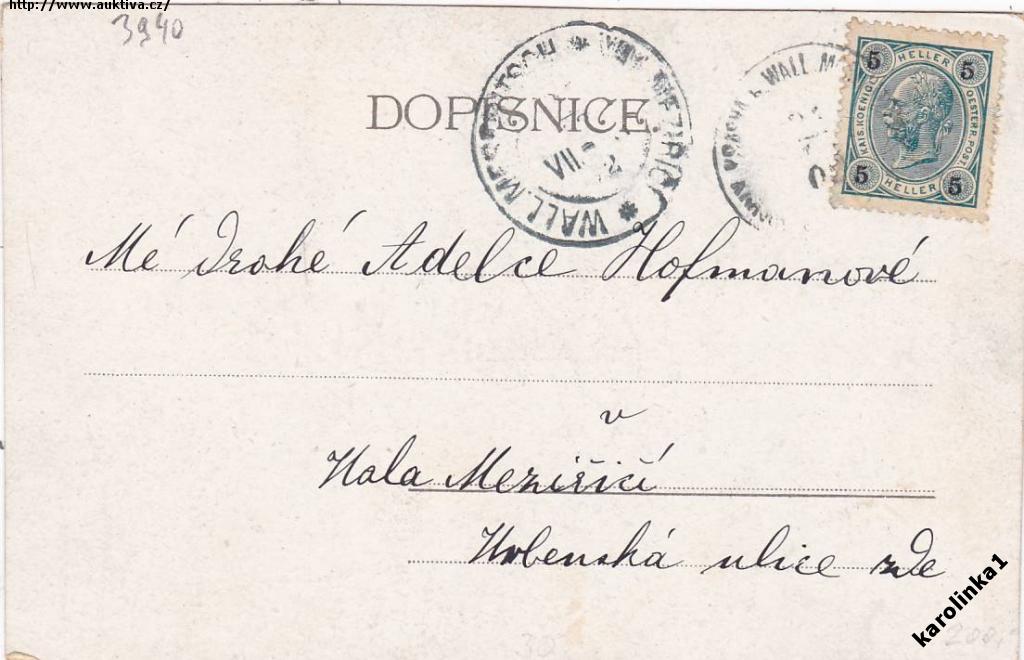 http://www.auktiva.cz/
3940
DOPISNICE.
WALL. MESERITSCH * VAL. MEZIŘÍČÍ *
VII
WALL. M
5 HELLER 5
KAIS. KOENIGL. OESTERR. POST.
5 HELLER 5
Mé drohé Adelce Hofmanové
v
Wala Meziřičí
Wrbenská ulice zde
karolinka1